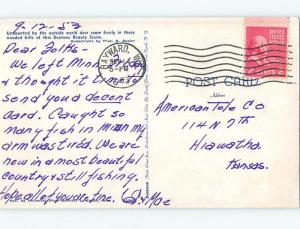 9-12-52
Untouched by the outside world deer roam freely in these
wooded hills of this Deuture Beauty Scene.
Dear Folks -
we left Minn
& thought it time to
send you a decent
card. Caught so
many fish in Minn my
arm was tired. We are
now in a most beautiful
country & still fishing.
Hope all of you are fine.
& Moe
HAYWARD,
POST CARD
Address
American Tele Co
114 N 7th
Hiawatha
Kansas.